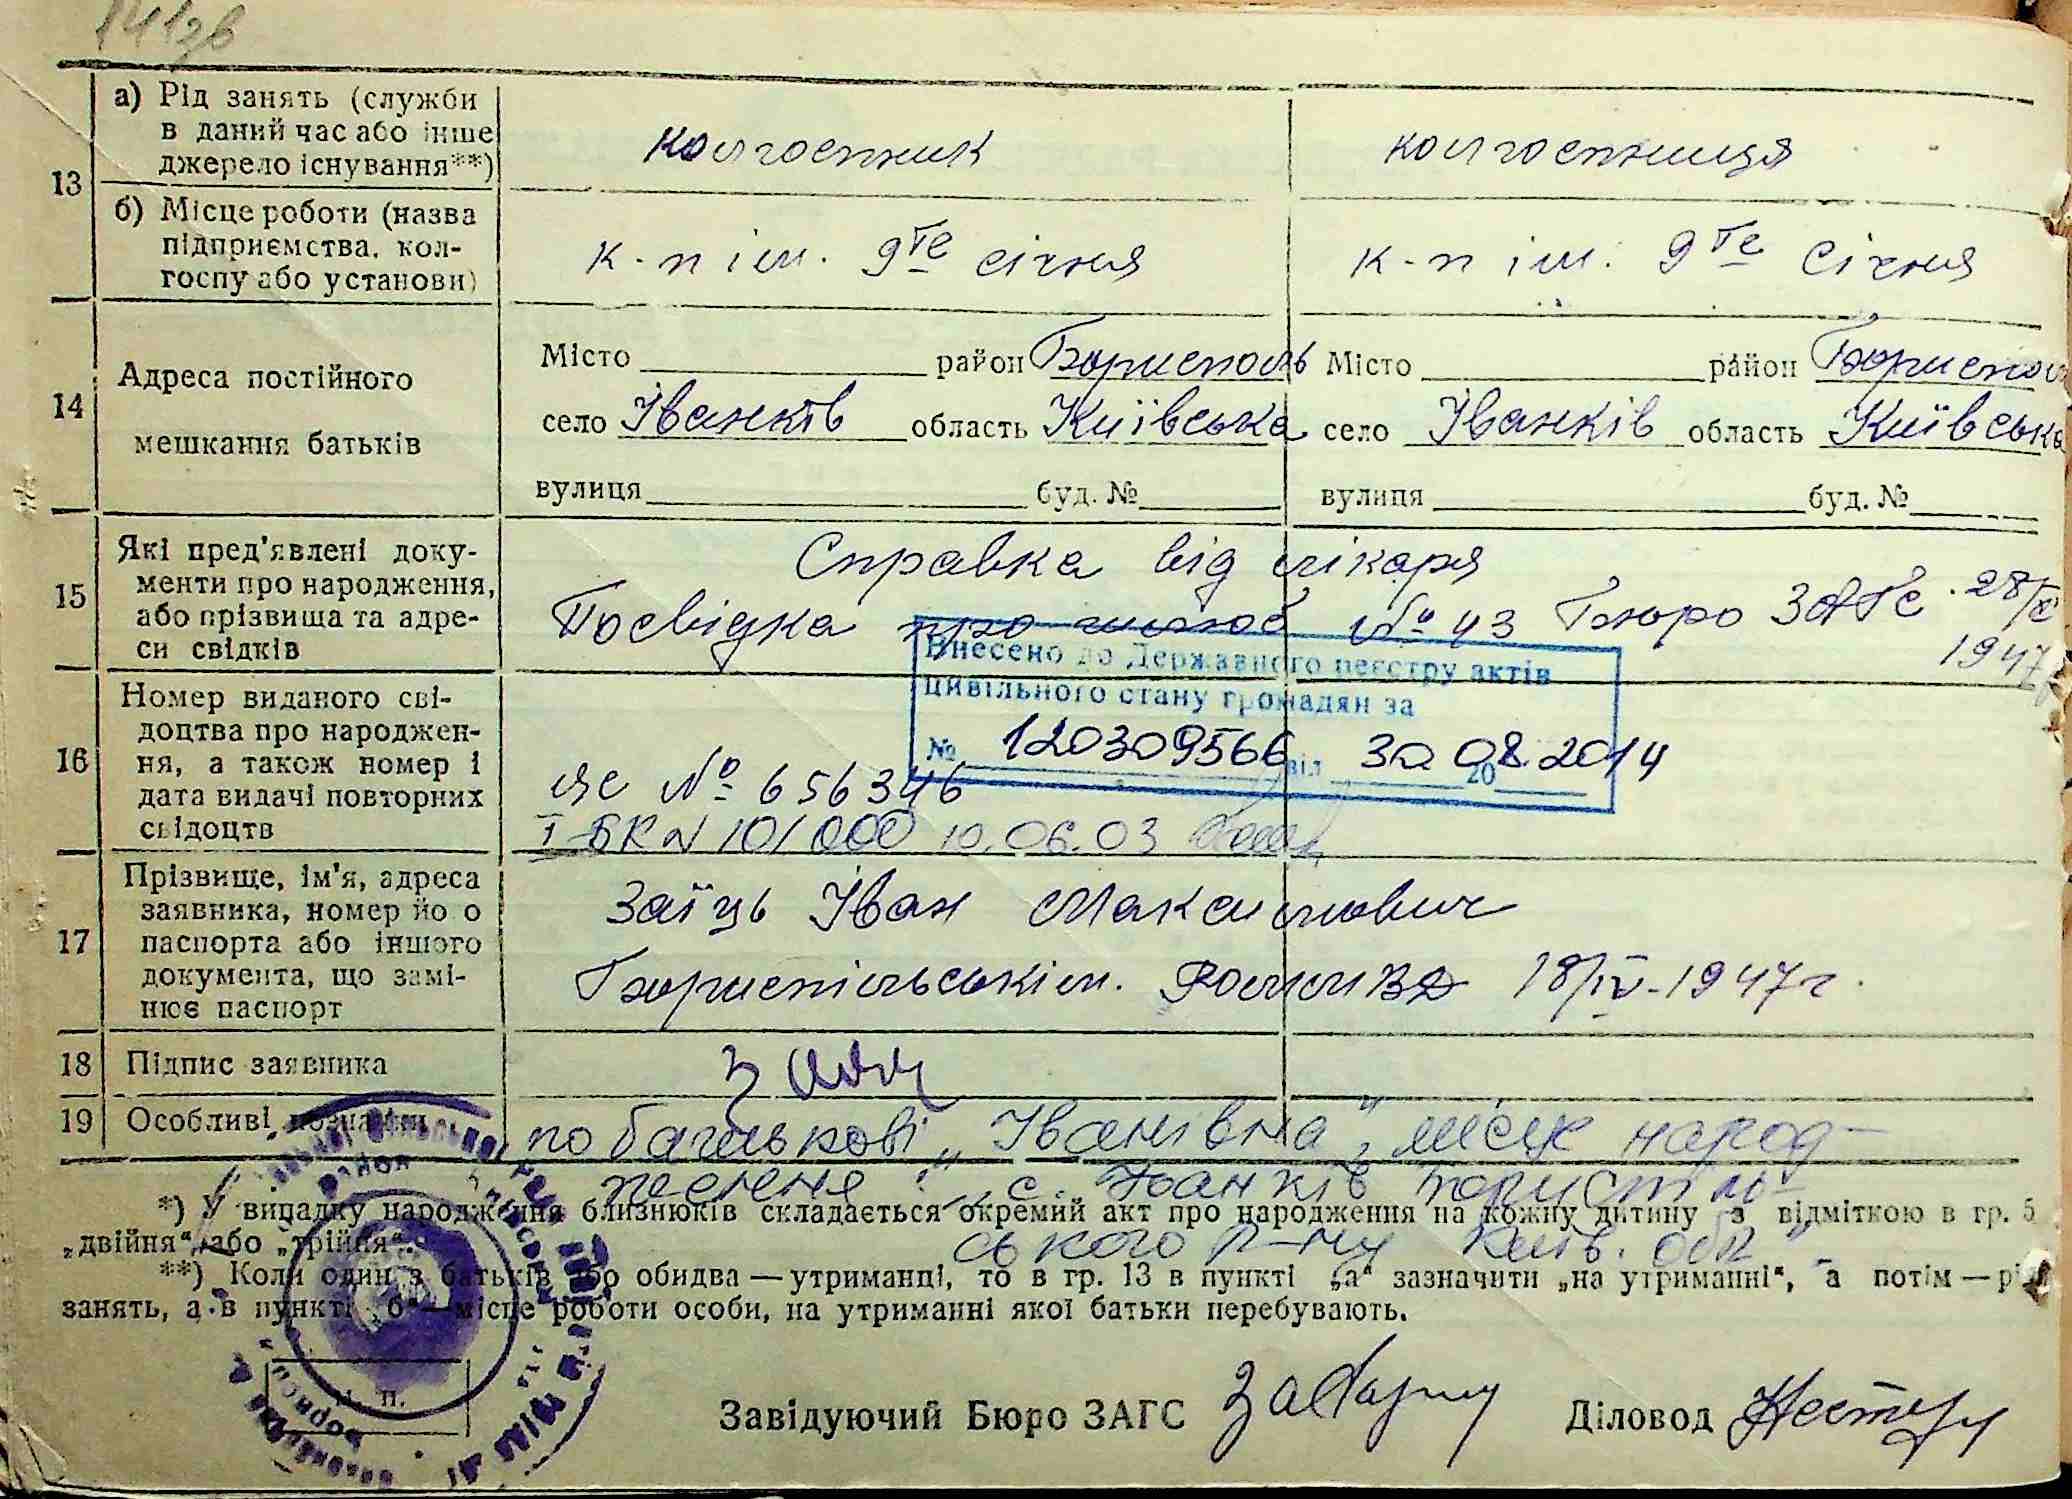 13
а) Рід занять (служби
в даний час або інше
джерело існування**)
колгоспник
колгоспниця
б) Місце роботи (назва
підприємства, кол-
госпу або установи)
к-п ім. 9го січня
к-п ім. 9го січня
14
Адреса постійного
мешкання батьків
Місто район Бориспол
село Іванків область Київська
вулиця буд. №
Місто район Бориспол
село Іванків область Київська
вулиця буд. №
15
Які пред'явлені доку-
менти про народження,
або прізвища та адре-
си свідків
Справка від лікаря
Посвідка про шлюб № 43 Бюро ЗАГС 28/
1947
Внесено до Державного реєстру актів
цивільного стану громадян за
№ 120309566 від 30.08.2014
20
16
Номер виданого сві-
доцтва про народжен-
ня, а також номер і
дата видачі повторних
свідоцтв
№ 656346
І-БК № 101000 10.06.03
17
Прізвище, ім'я, адреса
заявника, номер йо о
паспорта або іншого
документа, що замі-
нює паспорт
Заїць Іван Максимович
Бориспільськім. 18/IV-1947г.
18
Підпис заявника
Заяц
19
Особливі
по батькові „Іванівна", місце народ-
ження: „с. Іванків Бориспіль-
ського р-ну Київ. обл"
*) У випадку народження близнюків складається окремий акт про народження на кожну дитину з відміткою в гр. 5
„двійня" або „трійня".
**) Коли один з батьків або обидва — утриманці, то в гр. 13 в пункті „а" зазначити „на утриманні", а потім — рід
занять, а в пункті „б" — місце роботи особи, на утриманні якої батьки перебувають.
п.
Завідуючий Бюро ЗАГС
Діловод